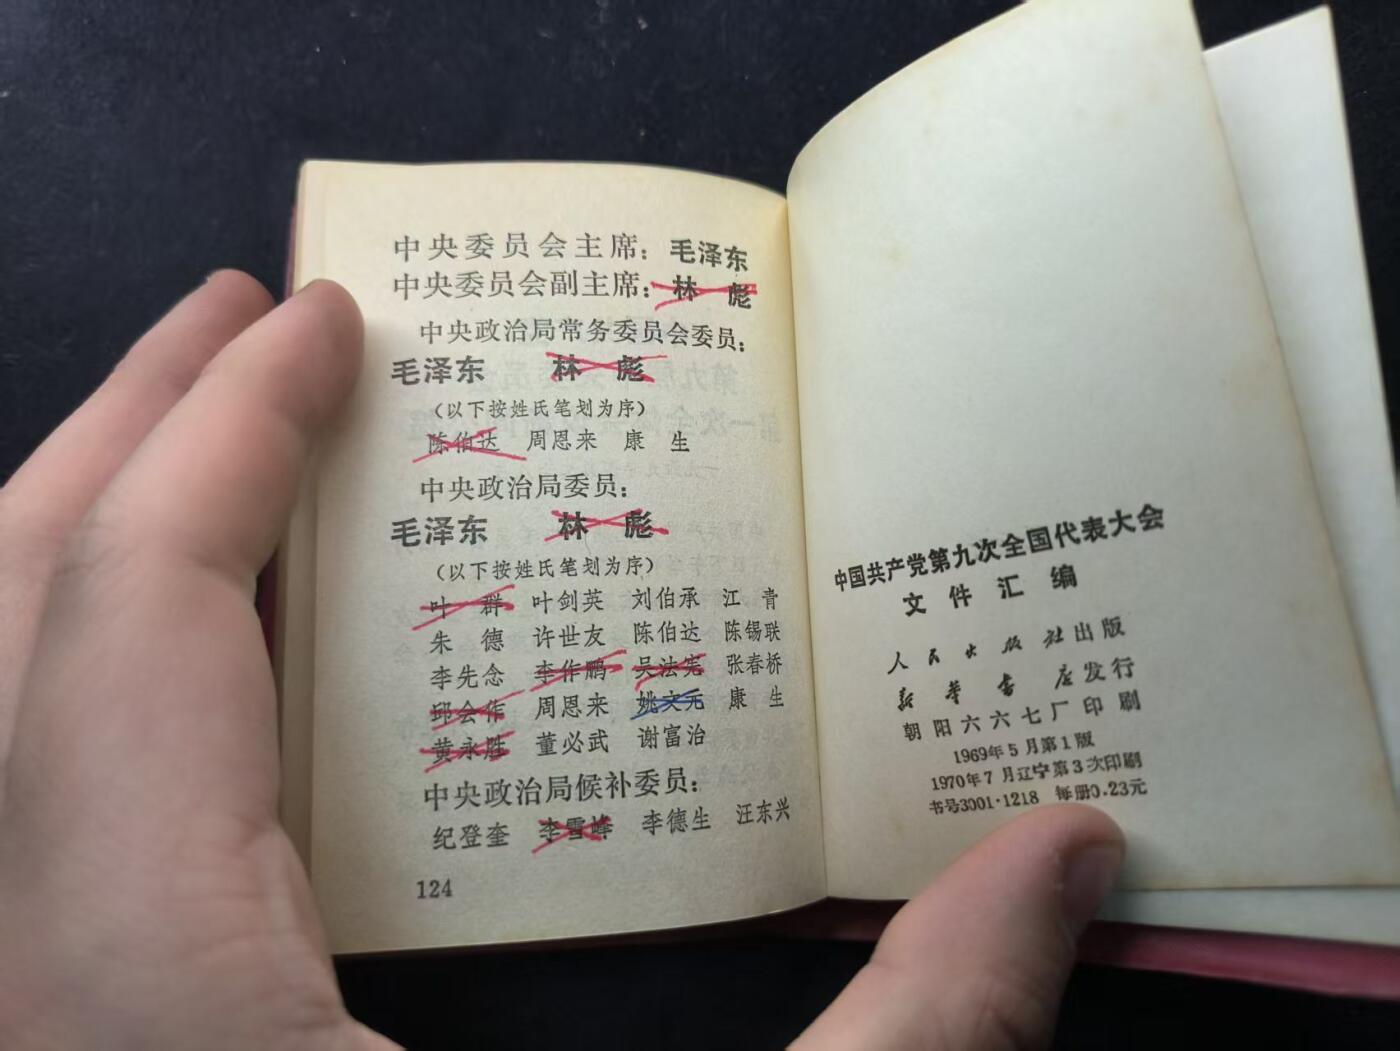 中央委员会主席：毛泽东
中央委员会副主席：林 彪
中央政治局常务委员会委员：
毛泽东 林 彪
（以下按姓氏笔划为序）
陈伯达 周恩来 康 生
中央政治局委员：
毛泽东 林 彪
（以下按姓氏笔划为序）
叶 群 叶剑英 刘伯承 江 青
朱 德 许世友 陈伯达 陈锡联
李先念 李作鹏 吴法宪 张春桥
邱会作 周恩来 姚文元 康 生
黄永胜 董必武 谢富治
中央政治局候补委员：
纪登奎 李雪峰 李德生 汪东兴
124
中国共产党第九次全国代表大会
文件汇编
人民出版社出版
新华书店发行
朝阳六六七厂印刷
1969年5月第1版
1970年7月辽宁第3次印刷
书号3001·1218 每册0.23元